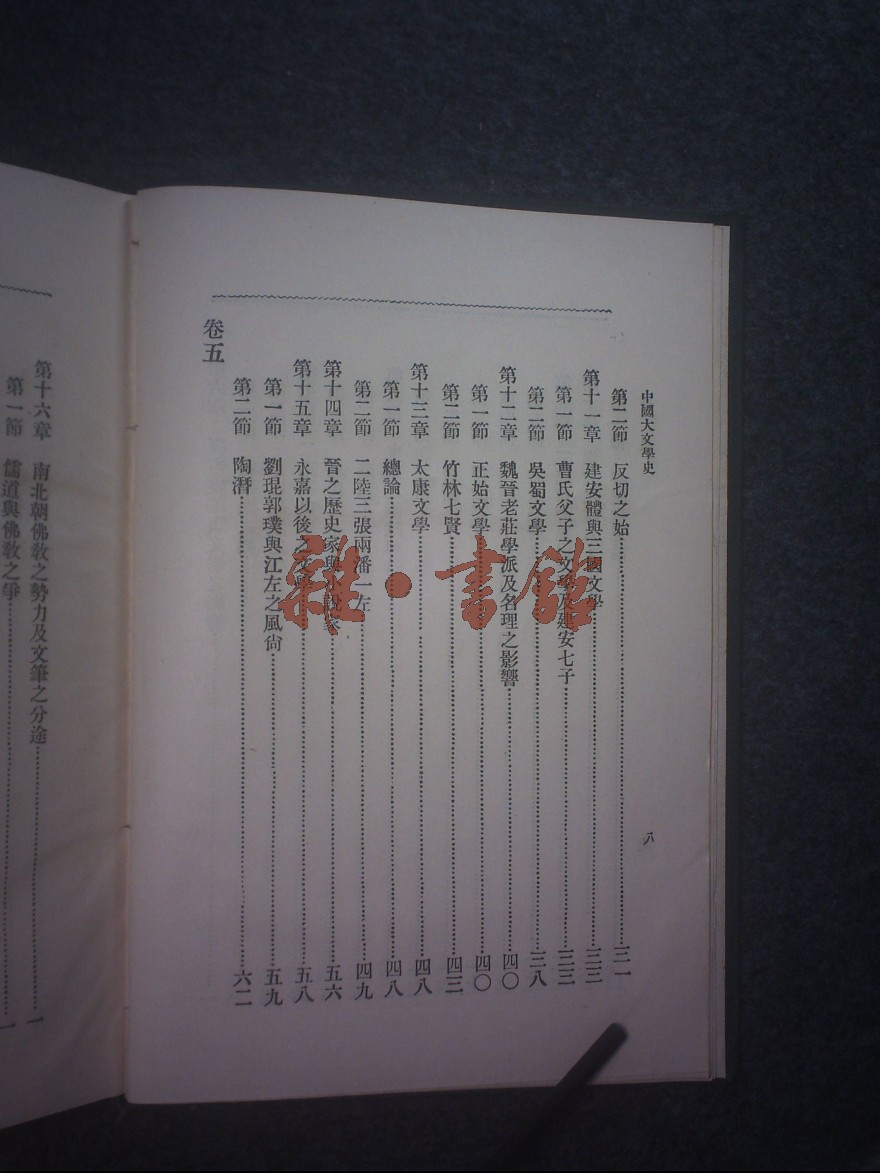 中國大文學史
八
第二節 反切之始 三一
第十一章 建安體與三國文學 三三
第一節 曹氏父子之文學及建安七子 三三
第二節 吳蜀文學 三八
第十二章 魏晉老莊學派及名理之影響 四〇
第一節 正始文學 四〇
第二節 竹林七賢 四三
第十三章 太康文學 四八
第一節 總論 四八
第二節 二陸三張兩潘一左 四九
第十四章 晉之歷史家與小說家 五六
第十五章 永嘉以後之文學 五八
第一節 劉琨郭璞與江左之風尙 五九
第二節 陶潛 六二
卷五
第十六章 南北朝佛敎之勢力及文筆之分途 一
第一節 儒道與佛敎之爭 一
雜·書館